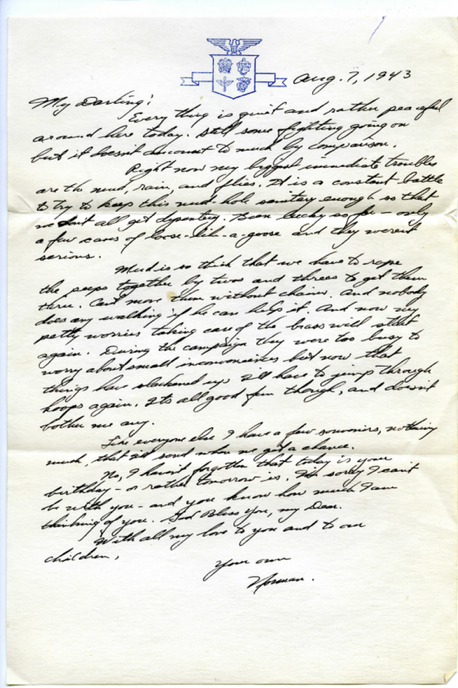 Aug. 7, 1943
My Darling:
Every thing is quiet and rather peaceful
around here today. Still some fighting going on
but it doesn't amount to much by comparison.
Right now my biggest immediate troubles
are the mud, rain, and flies. It is a constant battle
to try to keep this mud hole sanitary enough so that
we don't all get dysentry. Been lucky so far - only
a few cases of loose-like-a-goose and they weren't
serious.
Mud is so thick that we have to rope
the peeps together by twos and threes to get them
thru. Can't move them without chains. And nobody
does any walking if he can help it. And now my
petty worries taking care of the brass will start
again. During the campaign they were too busy to
worry about small inconveniences but now that
things have slackened up I'll have to jump through
hoops again. It's all good fun though, and doesn't
bother me any.
Like everyone else I have a few souvenirs, nothing
much, that I'll send when we get a chance.
No, I haven't forgotten that today is your
birthday - or rather tomorrow is. I'm sorry I can't
be with you - and you know how much I am
thinking of you. God Bless You, my Dear.
With all my love to you and to our
children,
Your own
Norman.